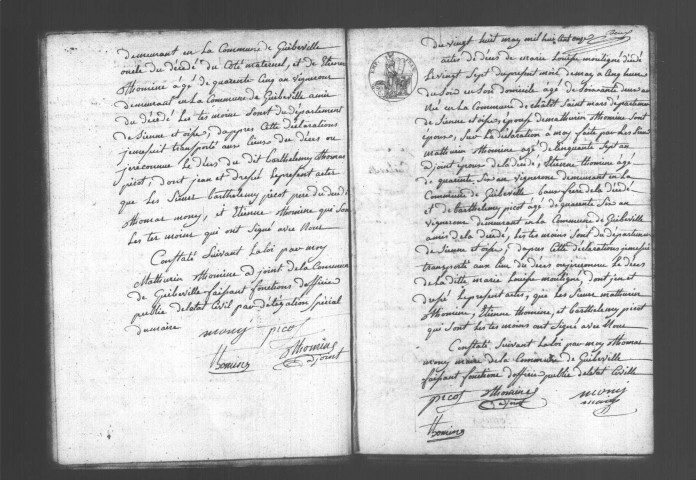 demeurant en La Commune de Guibeville
oncle du décédé du Coté maternel, et de Etienne
thomine agé de quarente Cinq an vigneron
demeurant en La Commune de Guibeville amie
du décédé Les tes moins Sont du département
de Sienne et oise, dapres Cette déclarations
je me suit transporté aux Lieu du décès ou
jai reconnue Le décès du dit barthelemy thomas
picot, dont jean et dresé Le present actes
que Les Sieurs barthelemy picot pere du décédé
thomas mony, et Etienne thomine qui Sont
Les tes moins qui ont Signé avec Nous
Constaté Suivant La loi par moy
Mathurin thomine adjoint de La Commune
de Guibeville faissant fonctions d'officie
publie de l'état Civil par délégation spécial
du maire
mony picot
thomine thomine
adjoint
du vingt huit may mil huit Cent onze
actes de décès de marie Louise montigné décédé
Le vingt Sept du present mois de may a Cinq heures
du Soir en Son domicile agé de Soixante deux an
Né en La Commune de Saint mard département
de Sienne et oise, épouse de mathurin thomine Sont
époux, Sur La déclaration a moy faite par Les Sieurs
mathurin thomine agé de Cinquente Sept an
adjoint époux de La décédé, Etienne thomine agé
de quarente Six an vigneron demeurant en La
Commune de Guibeville beau frere de La décédé
et de barthelemy picot agé de quarente Six an
vigneron demeurant en La Commune de Guibeville
amie de La décédé, Les tes moins Sont du département
de Sienne et oise, dapres Cette déclarations je me suit
transporté aux Lieu du décès ou jai reconnue Le décès
de La ditte marie Louise montigné, dont jen et
dresé Le present actes, que Les Sieurs mathurin
thomine, Etienne thomine, et barthelemy picot
qui Sont Les tes moins ont Signé avec Nous
Constaté Suivant La loi par moy thomas
mony maire de La Commune de Guibeville
faissant fonctions d'officie publie de l'état Civille
picot thomine mony
adjoint maire
thomine